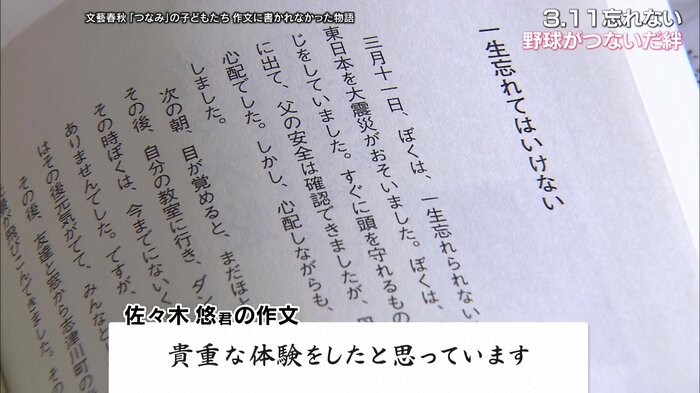 文藝春秋「つなみ」の子どもたち 作文に書かれなかった物語
3.11忘れない
野球がつないだ絆
一生忘れてはいけない
三月十一日、ぼくは、一生忘れられない、
東日本を大震災がおそいました。ぼくは、
じをしていました。すぐに頭を守れるもの
に出て、父の安全は確認できましたが、
心配でした。しかし、心配しながらも、
しました。
次の朝、目が覚めると、まだほと
その後、自分の教室に行き、ダン
その時ぼくは、今までにない
ありませんでした。ですが、
はその後元気がでて、みんなと
その後、友達と窓から志津川町の
飛びこんできました。その
佐々木 悠君の作文
貴重な体験をしたと思っています